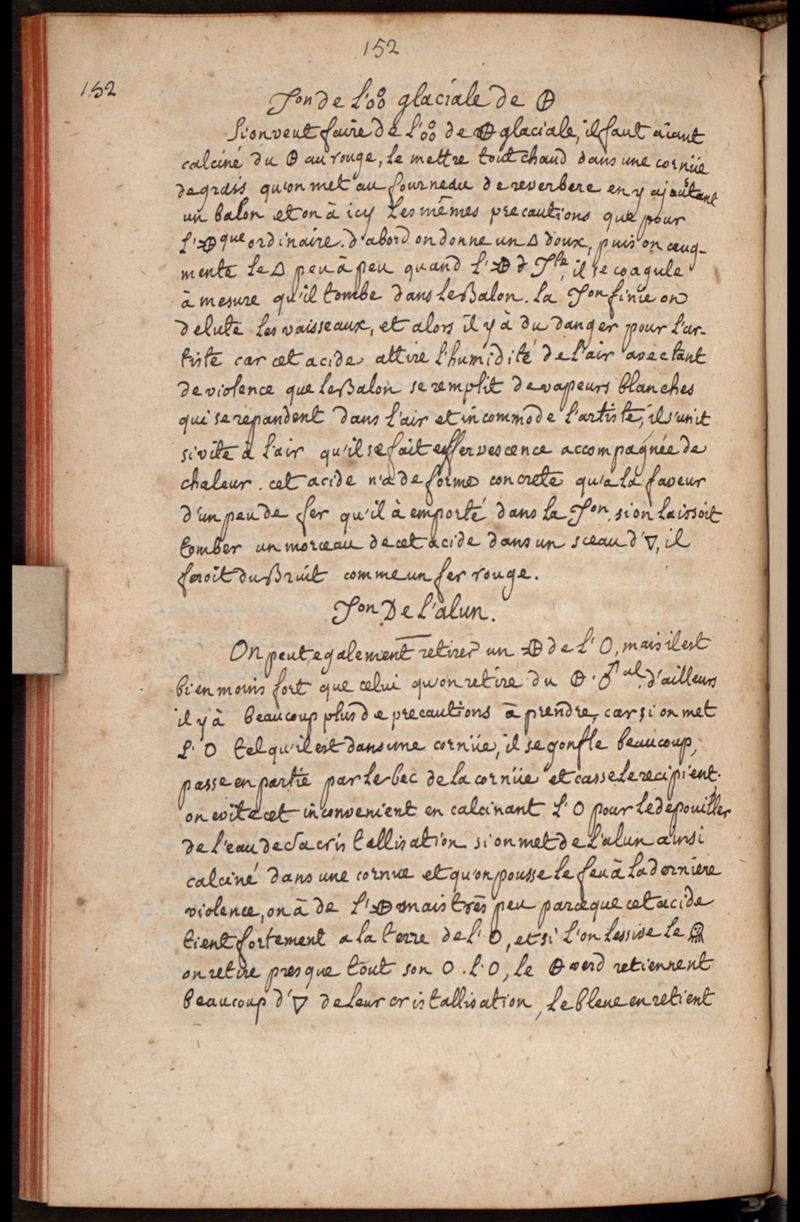 152
152
Jon de L'o%o glaciale de 🜖
Si on veut faire de L'o%o de 🜖 glaciale, il faut aïant
calciné du 🜖 au rouge, le mettre tout chaud dans une cornüe
de grais qu'on met au fourneau de reverbere en y ajoutant
un balon et on à icy les mêmes precautions que pour
L' que ordinaire. d'abord on donne un 🜂 doux, puis on aug-
mente le 🜂 peu à peu quand L' il se coagule
à mesure qu'il tombe dans le Balon. la Jon finie on
delute les vaisseaux, et alors il y à du danger pour l'ar-
tiste car cet acide attire l'humidité de l'air avec tant
de violence que le Balon se remplit de vapeurs blanches
qui se repandent dans l'air et incommode l'artiste, il s'unit
si vite à l'air qu'il se fait effervescence accompagnée de
chaleur. cet acide n'a de forme concrete qu'a la faveur
d'un peu de fer qu'il à emporté dans la Jon. si on laissoit
tomber un morceau de cet acide dans un sceau d'🜄, il
feroit du Bruit comme un fer rouge.
Jon De l'alun.
On peut egalement retirer un de L' O, mais il est
bien moins fort que celui qu'on retire du 🜖 ♂al. d'ailleurs
il y à beaucoup plus de precautions à prendre, car si on met
L' O tel qu'il est dans une cornüe, il se gonfle beaucoup,
passe en partie par le bec de la cornüe et casse le recipient.
on evite cet inconvenient en calcinant L' O pour le depouiller
de l'eau de sa cristallisation si on met de l'alun ainsi
calciné dans une cornue et qu'on pousse le feu à la derniere
violence, on à de L' mais très peu parceque cet acide
tient fortement a la terre de L' O, et si l'on lessive le
on retire presque tout son O. L' O, le 🜖 verd retiennent
beaucoup d'🜄 de leur cristallisation, le bleue en retient